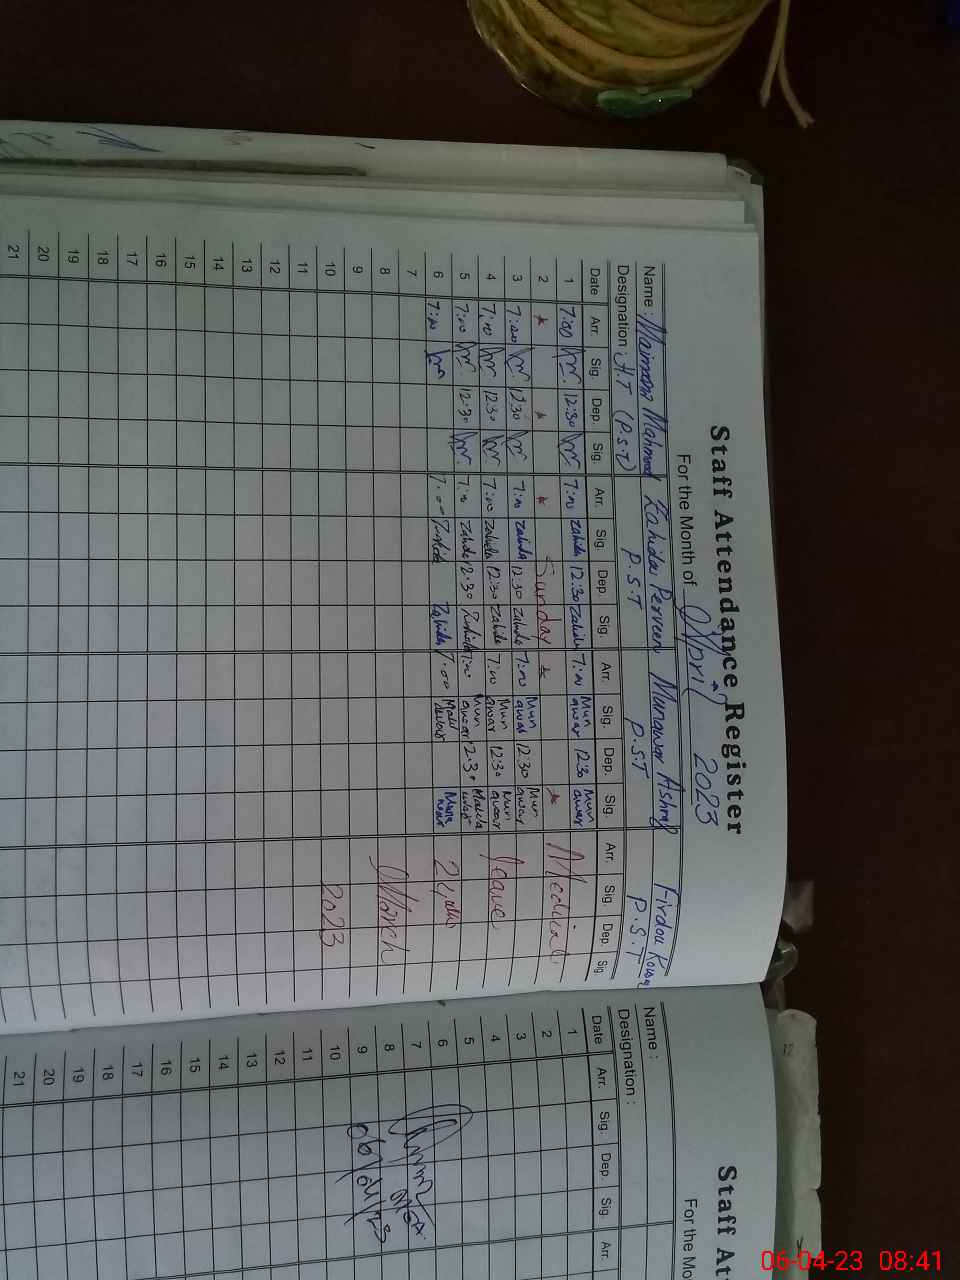 Staff Attendance Register
For the Month of April 2023
Name : Maimoona Mahmood Zahida Perveen Munawar Ashraf Firdou Kousar
Designation : H.T (P.S.T) P.S.T P.S.T P.S.T
Date Arr. Sig. Dep. Sig. Arr. Sig. Dep. Sig. Arr. Sig. Dep. Sig. Arr. Sig. Dep. Sig
1 7:00 12:30 7:00 Zahida 12:30 Zahida 7:00 Munawar 12:30 Munawar Medical
2 Sunday
3 7:00 12:30 7:00 Zahida 12:30 Zahida 7:00 Munawar 12:30 Munawar
4 7:00 12:30 7:00 Zahida 12:30 Zahida 7:00 Munawar 12:30 Munawar leave
5 7:00 12:30 7:00 Zahida 12:30 Zahida 7:00 Munawar 12:30
6 7:00 7:00 Zahida Zahida 7:00
7
8 March
9
10 2023
11
12
13
14
15
16
17
18
19
20
21
Staff At
For the Mo
Name :
Designation :
Date Arr. Sig. Dep. Sig. Arr.
1
2
3
4
5
6
7
8
9
10
11
12
13
14
15
16
17
18
19
20
21
06-04-23 08:41